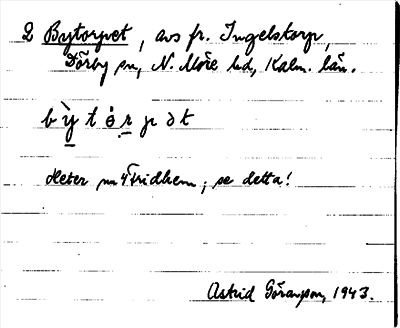 2 Bytorpet, avs fr. Ingelstorp,
Dörby sn, N. Möre hd, Kalm. län.
bỳ̠tȯr̠pət
Heter nu Fridhem; se detta!
Astrid Göransson, 1943.